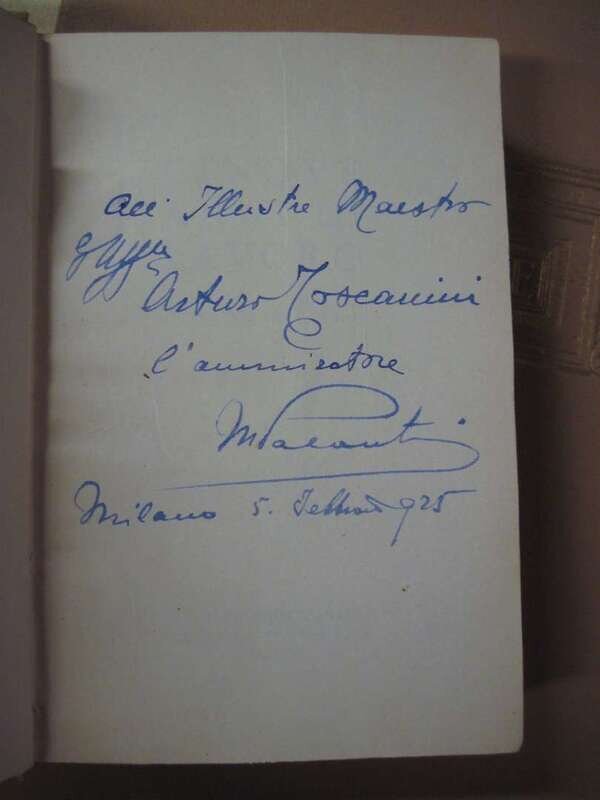 All' Illustre Maestro
Arturo Toscanini
l'ammiratore
MPalanti
Milano 5. Febbraio 925